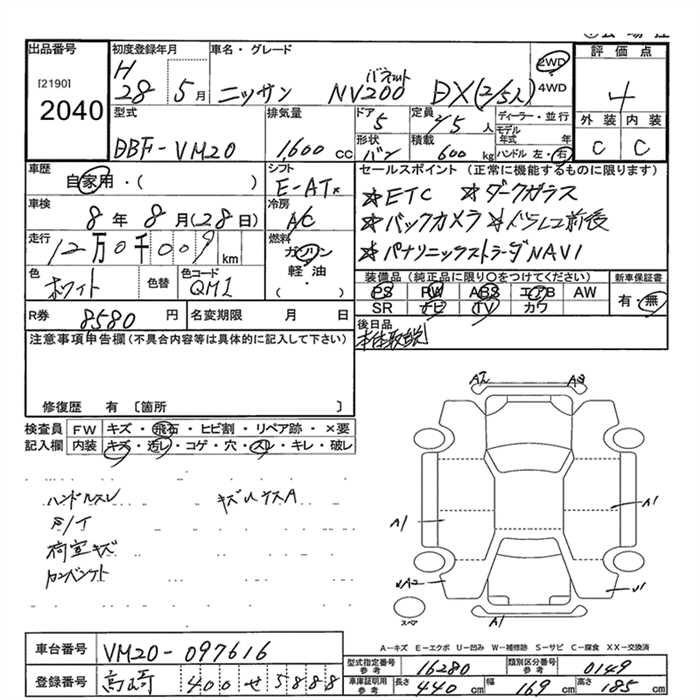 出品番号 初度登録年月 車名・グレード 評価点
[2190] H 28 5月 ニッサン バネット NV200 DX(2/5人) 2WD 4WD 4
2040
型式 排気量 ドア 5 定員 2/5人 ディーラー・並行 外装 内装
DBF-VM20 1,600 cc 形状 バン 積載 600 kg モデル年式 年 ハンドル 左・右 C C
車歴 自家用・( ) シフト E-AT セールスポイント (正常に機能するものに限ります)
車検 8年8月(28日) 冷房 A/C ☆ETC ☆ダークガラス
☆バックカメラ 前後
走行 12万0千009 km 燃料 ガソリン・軽油・( ) ☆パナソニックストラーダNAVI
色 ホワイト 色替 色コード QM1 装備品 (純正品に限り○をつけてください) 新車保証書
PS PW ABS エアB AW 有・無
SR ナビ TV カワ
R券 8580 円 名変期限 月 日 後日品
注意事項申告欄(不具合内容等は具体的に記入して下さい) 本体取説
修復歴 有 〔箇所 〕
検査員 記入欄 FW キズ・飛石・ヒビ割・リペア跡・×要
内装 キズ・汚レ・コゲ・穴・スレ・キレ・破レ
A2 A3
ハンドルスレ
荷室キズ
A1 A1
A2
スペア
A1
A-キズ E-エクボ U-凹み W-補修跡 S-サビ C-腐食 XX-交換済
車台番号 VM20-097616
型式指定番号 参考 16280 類別区分番号 参考 0149
登録番号 高崎 400 せ 5888 車庫証明用 参考 長さ 440 cm 幅 169 cm 高さ 185 cm